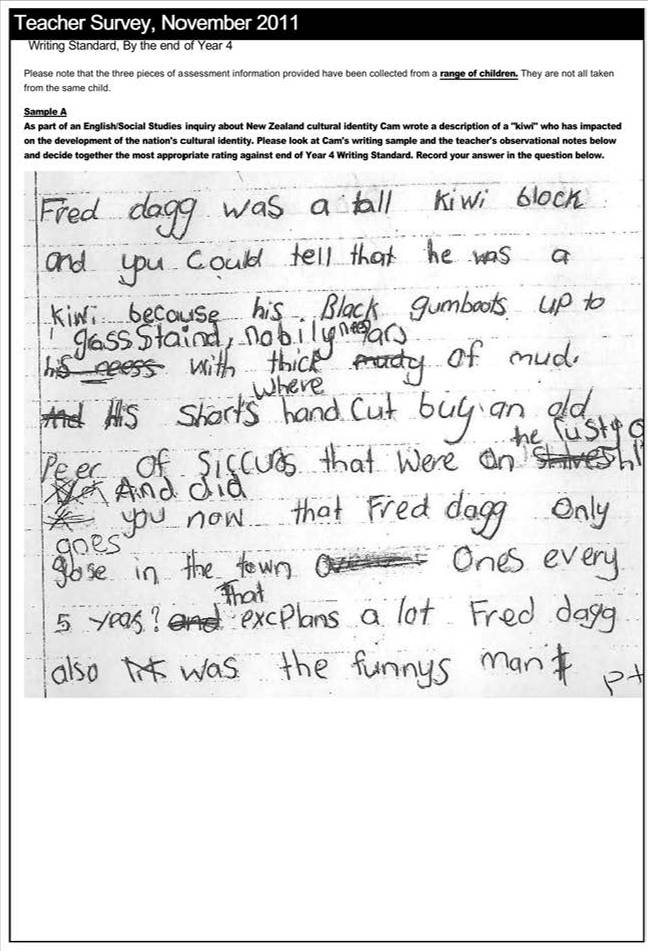 Teacher Survey, November 2011
Writing Standard, By the end of Year 4
Please note that the three pieces of assessment information provided have been collected from a range of children. They are not all taken
from the same child.
Sample A
As part of an English/Social Studies inquiry about New Zealand cultural identity Cam wrote a description of a "kiwi" who has impacted
on the development of the nation's cultural identity. Please look at Cam's writing sample and the teacher's observational notes below
and decide together the most appropriate rating against end of Year 4 Writing Standard. Record your answer in the question below.
Fred dagg was a tall kiwi block
and you could tell that he was a
kiwi because his Black gumboots up to
grass Staind, nobily
his with thick mudy of mud.
where
And His Shorts hand cut buy an old
the rusty
Peer of Siccuos that were on
And did
you now that Fred dagg only
goes
in the town Ones every
That
5 years? and excplans a lot Fred dagg
also was the funnys man